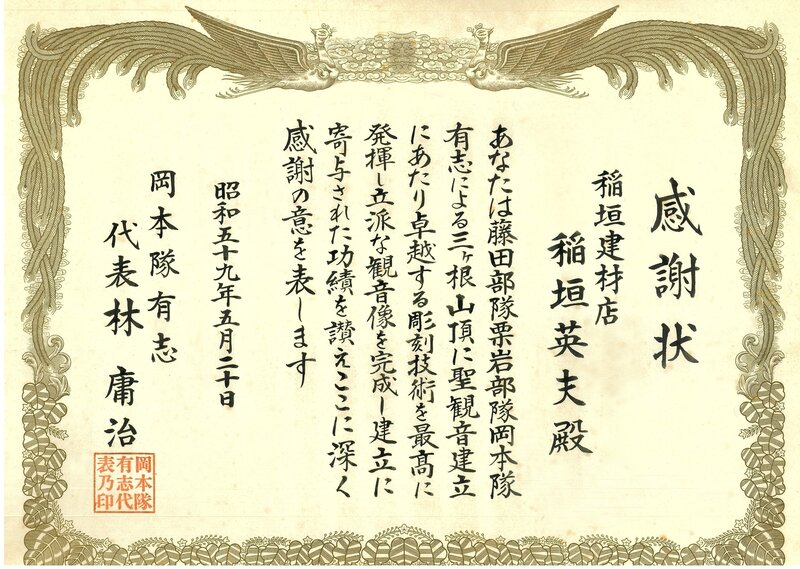 感謝状
稲垣建材店
稲垣英夫殿
あなたは藤田部隊栗岩部隊岡本隊
有志による三ヶ根山頂に聖観音建立
にあたり卓越する彫刻技術を最高に
発揮し立派な観音像を完成し建立に
寄与された功績を讃えここに深く
感謝の意を表します
昭和五十九年五月二十日
岡本隊有志
代表林庸治
岡本隊
有志代
表乃印